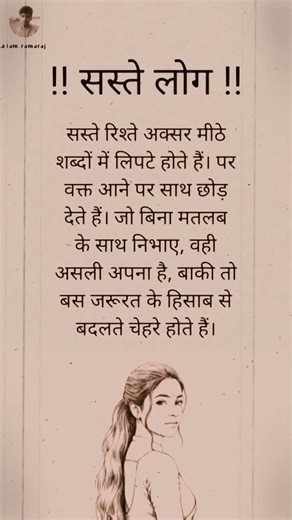 a l a m . r a m a r a j
!! सस्ते लोग !!
सस्ते रिश्ते अक्सर मीठे
शब्दों में लिपटे होते हैं। पर
वक्त आने पर साथ छोड़
देते हैं। जो बिना मतलब
के साथ निभाए, वही
असली अपना है, बाकी तो
बस जरूरत के हिसाब से
बदलते चेहरे होते हैं।